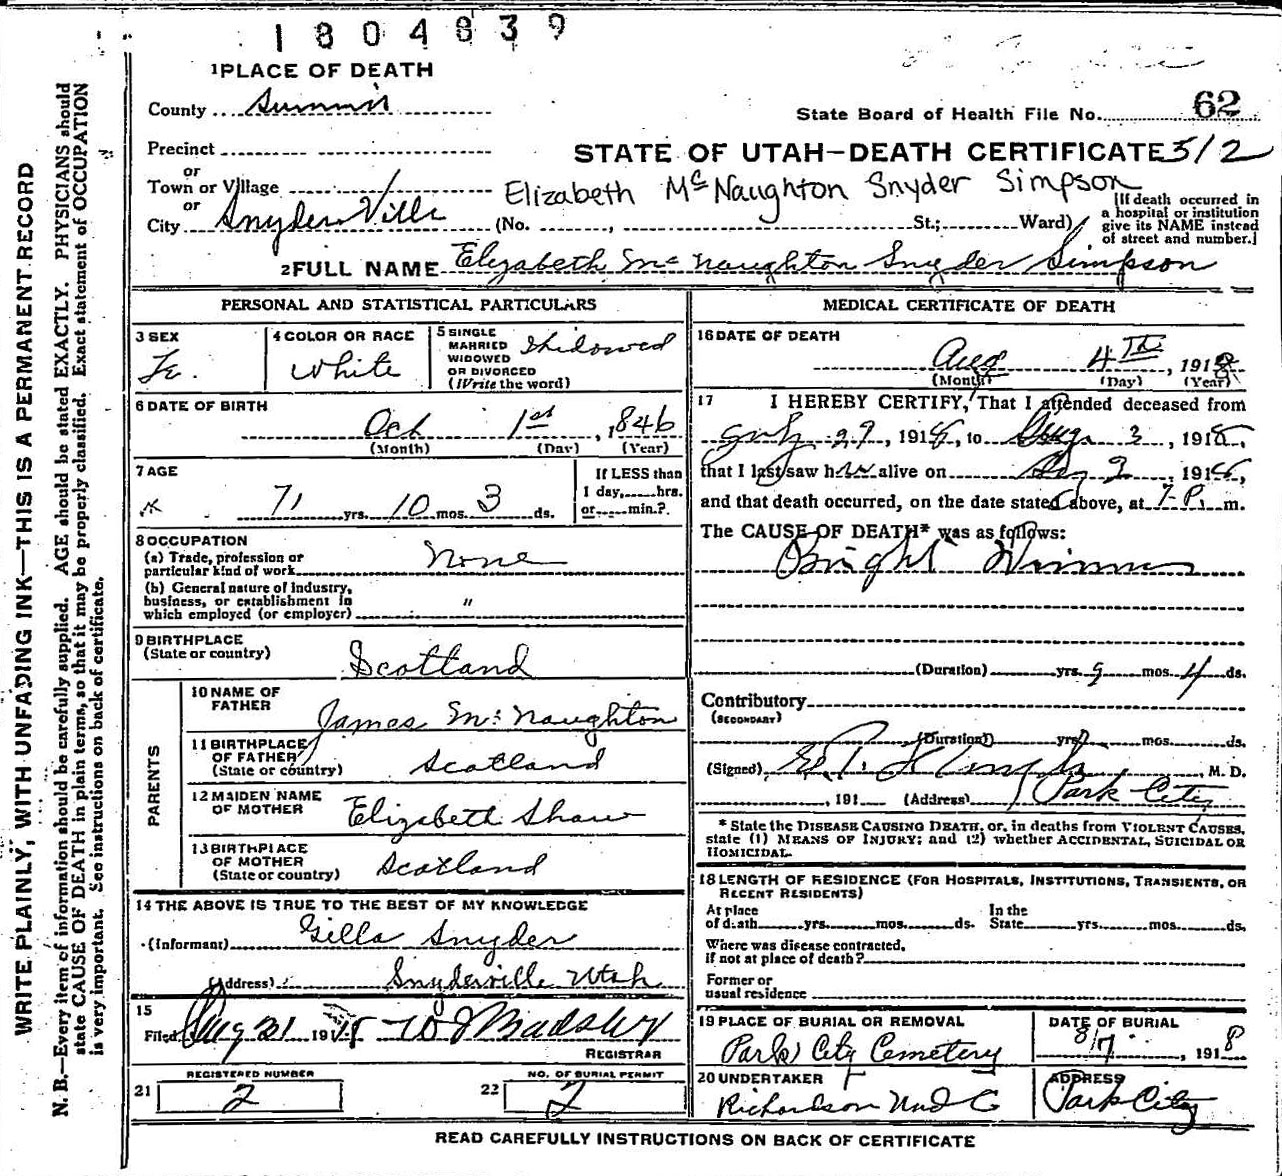 1804839
1 PLACE OF DEATH
County Summit
State Board of Health File No. 62
Precinct
or
Town or Village
or
City Snyderville
STATE OF UTAH—DEATH CERTIFICATE 512
Elizabeth McNaughton Snyder Simpson
(No. , St.; Ward)
[If death occurred in
a hospital or institution
give its NAME instead
of street and number.]
2 FULL NAME Elizabeth McNaughton Snyder Simpson
PERSONAL AND STATISTICAL PARTICULARS
3 SEX
Fe.
4 COLOR OR RACE
White
5 SINGLE
MARRIED
WIDOWED
OR DIVORCED
(Write the word)
Widowed
6 DATE OF BIRTH
Oct 1st, 1846
(Month) (Day) (Year)
7 AGE
71 yrs. 10 mos. 3 ds.
If LESS than
1 day, hrs.
or min.?
8 OCCUPATION
(a) Trade, profession or
particular kind of work None
(b) General nature of industry,
business, or establishment in
which employed (or employer) "
9 BIRTHPLACE
(State or country)
Scotland
PARENTS
10 NAME OF
FATHER
James McNaughton
11 BIRTHPLACE
OF FATHER
(State or country)
Scotland
12 MAIDEN NAME
OF MOTHER
Elizabeth Shaw
13 BIRTHPLACE
OF MOTHER
(State or country)
Scotland
14 THE ABOVE IS TRUE TO THE BEST OF MY KNOWLEDGE
(Informant) Gilla Snyder
(Address) Snyderville Utah
15
Filed Aug 31 1918
REGISTRAR
REGISTERED NUMBER
21 2
NO. OF BURIAL PERMIT
22 2
MEDICAL CERTIFICATE OF DEATH
16 DATE OF DEATH
Aug 4th, 1918
(Month) (Day) (Year)
17 I HEREBY CERTIFY, That I attended deceased from
July 29, 1918, to Aug. 3, 1918,
that I last saw her alive on 1918,
and that death occurred, on the date stated above, at 7 P. m.
The CAUSE OF DEATH* was as follows:
Bright
(Duration) yrs. 9 mos. 4 ds.
Contributory
(SECONDARY)
(Duration) yrs. mos. ds.
(Signed) , M. D.
, 191 (Address) Park City
* State the DISEASE CAUSING DEATH, or, in deaths from VIOLENT CAUSES,
state (1) MEANS OF INJURY; and (2) whether ACCIDENTAL, SUICIDAL OR
HOMICIDAL.
18 LENGTH OF RESIDENCE (FOR HOSPITALS, INSTITUTIONS, TRANSIENTS, OR
RECENT RESIDENTS)
At place
of death yrs. mos. ds.
In the
State yrs. mos. ds.
Where was disease contracted,
if not at place of death?
Former or
usual residence
19 PLACE OF BURIAL OR REMOVAL
Park City Cemetery
DATE OF BURIAL
8/7, 1918
20 UNDERTAKER
Richardson Und Co
ADDRESS
Park City
READ CAREFULLY INSTRUCTIONS ON BACK OF CERTIFICATE
WRITE PLAINLY, WITH UNFADING INK—THIS IS A PERMANENT RECORD
N. B.—Every item of information should be carefully supplied. AGE should be stated EXACTLY. PHYSICIANS should
state CAUSE OF DEATH in plain terms, so that it may be properly classified. Exact statement of OCCUPATION
is very important. See instructions on back of certificate.